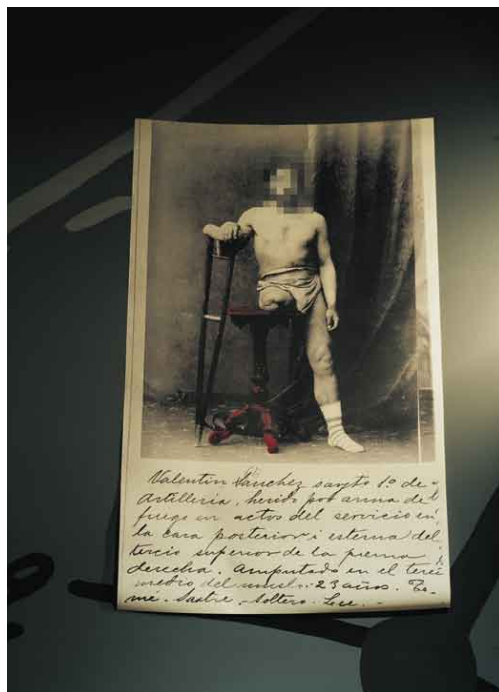 Valentin Sanchez sargto 1º de
Artilleria, herido por arma de
fuego en actos del servicio en
la cara posterior i esterna del
tercio superior de la pierna
derecha. Amputado en el terci
medio del muslo. 23 años. Te-
mi. Sastre. Soltero.